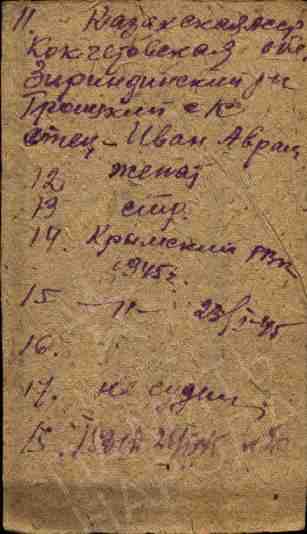 11. Казахская ССР
Кокчетовская об.
Зириндинский р-н
Троицкий с/с
отец - Иван Аврам
12 женат
13 стр.
14. Крымский РВК
1945 г.
15 -"- 23/I-45
16.
17. не судим
18.